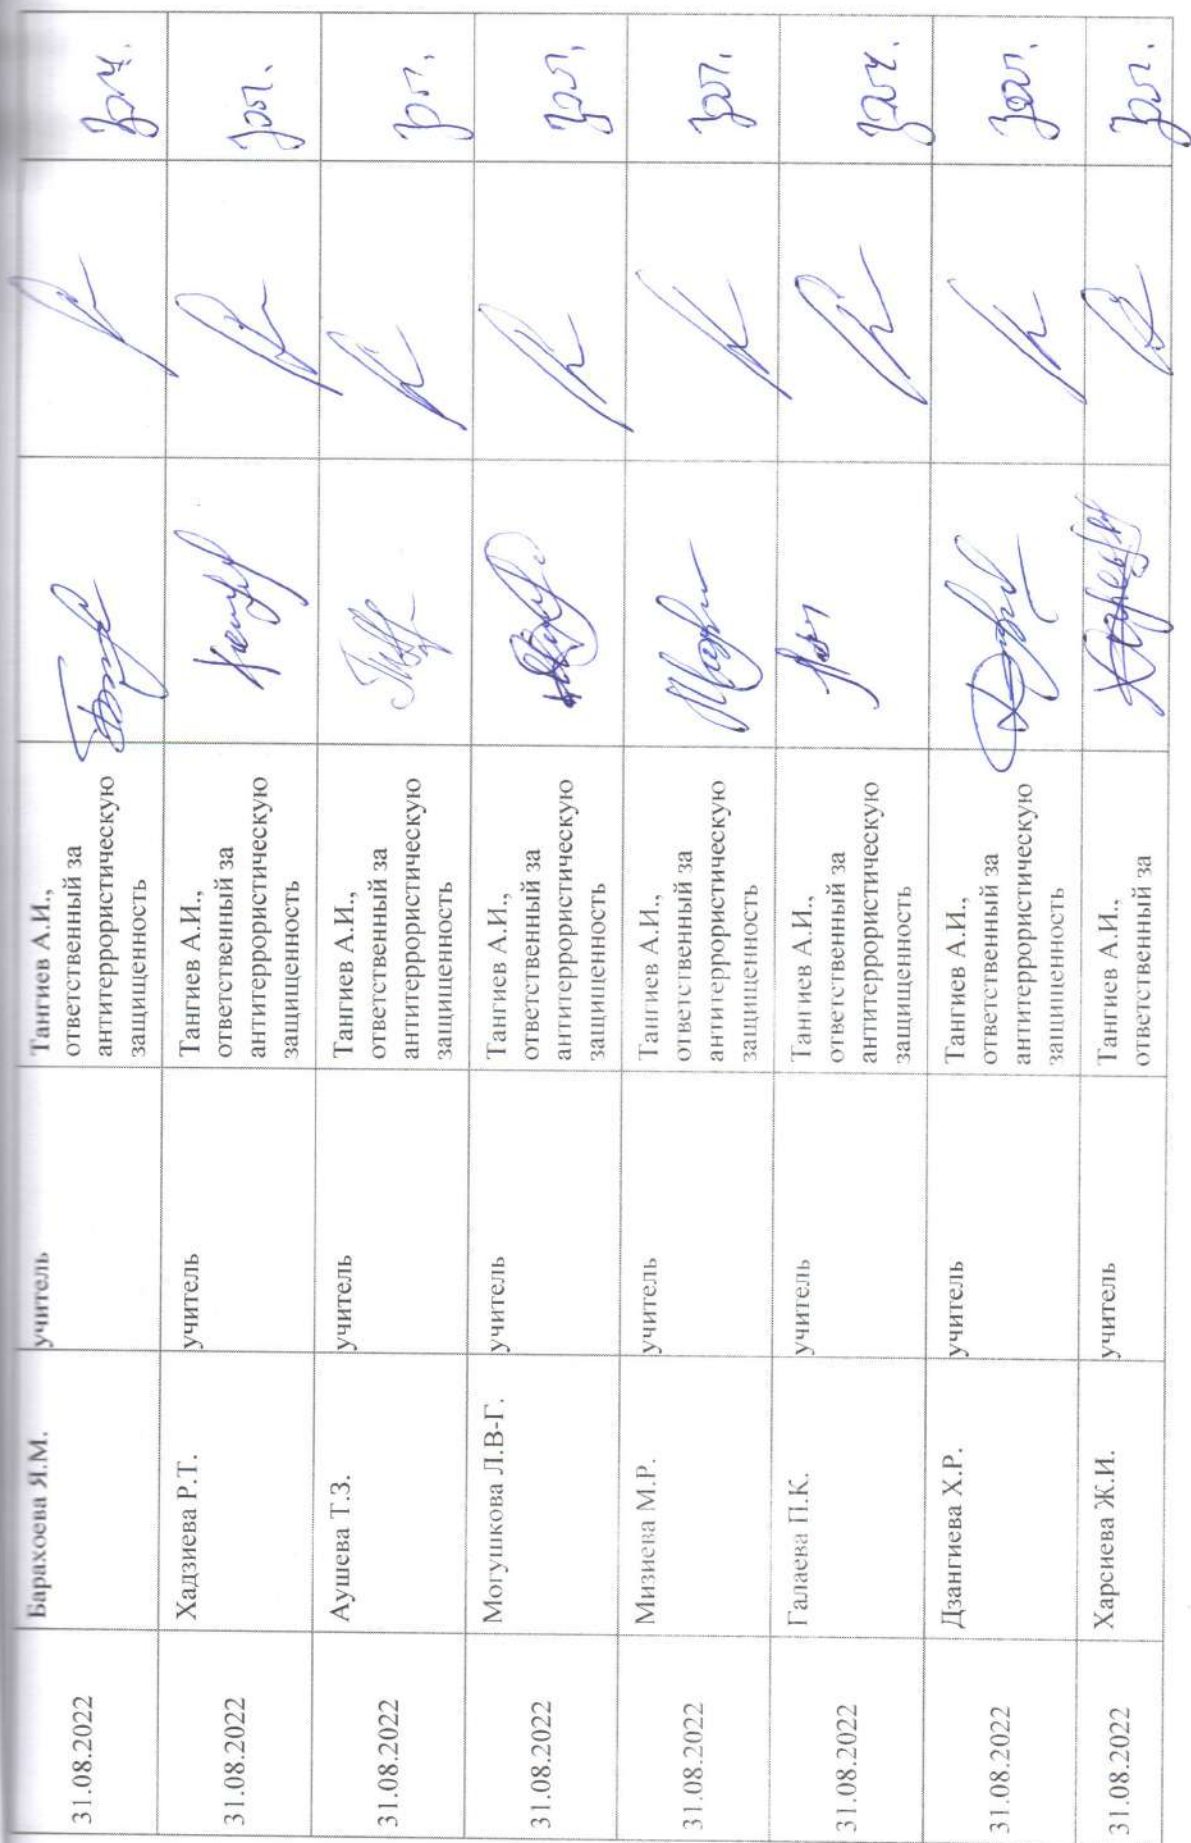 31.08.2022
Барахоева Я.М.
учитель
Тангиев А.И.,
ответственный за
антитеррористическую
защищенность
31.08.2022
Хадзиева Р.Т.
учитель
Тангиев А.И.,
ответственный за
антитеррористическую
защищенность
31.08.2022
Аушева Т.З.
учитель
Тангиев А.И.,
ответственный за
антитеррористическую
защищенность
31.08.2022
Могушкова Л.В-Г.
учитель
Тангиев А.И.,
ответственный за
антитеррористическую
защищенность
31.08.2022
Мизиева М.Р.
учитель
Тангиев А.И.,
ответственный за
антитеррористическую
защищенность
31.08.2022
Галаева П.К.
учитель
Тангиев А.И.,
ответственный за
антитеррористическую
защищенность
31.08.2022
Дзангиева Х.Р.
учитель
Тангиев А.И.,
ответственный за
антитеррористическую
защищенность
31.08.2022
Харсиева Ж.И.
учитель
Тангиев А.И.,
ответственный за